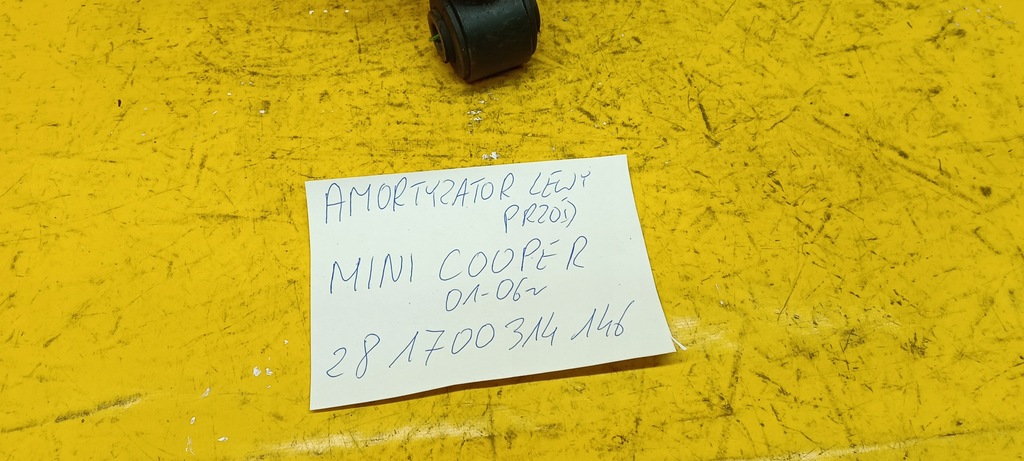 AMORTYZATOR LEWY
PRZÓD
MINI COOPER
01-06r
28 1700 314 146